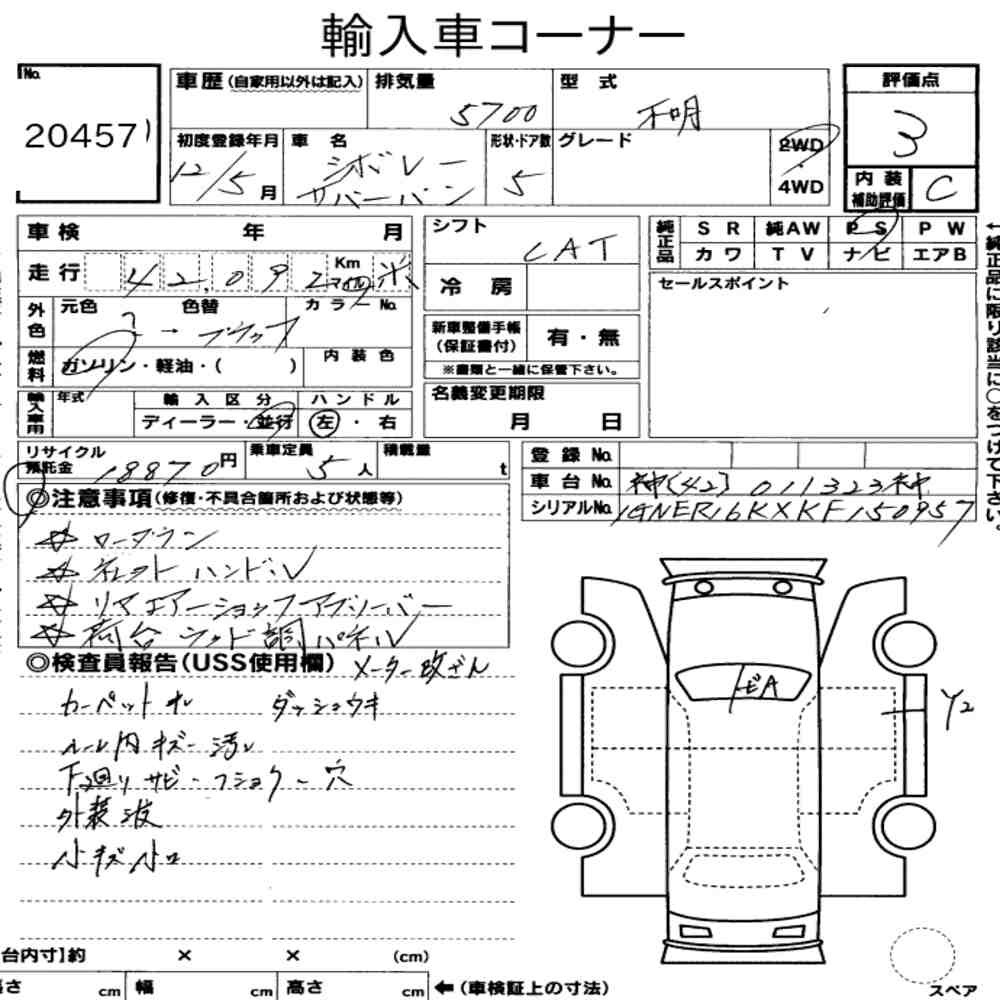 輸入車コーナー
No. 20457
車歴(自家用以外は記入) 排気量 5700 型式 不明 評価点 3
初度登録年月 12/5月 車名 シボレー サバーバン 形状・ドア数 5 グレード 2WD・4WD
内装補助評価 C
車検 年 月
走行 42,092 Km マイル 米
外色 元色 ? → 色替 ブラック カラーNo.
燃料 ガソリン・軽油・( ) 内装色
輸入車用 年式 輸入区分 ディーラー・並行 ハンドル 左・右
シフト CAT
冷房
新車整備手帳(保証書付) 有・無
※書類と一緒に保管下さい。
名義変更期限 月 日
純正品 SR 純AW PS PW
カワ TV ナビ エアB
セールスポイント
←純正品に限り該当に○をつけて下さい。
リサイクル預託金 18870円 乗車定員 5人 積載量 t
登録No.
車台No. 神(42)011323神
シリアルNo. 1GNER16KXKF150957
◎注意事項(修復・不具合箇所および状態等)
☆ ローダウン
☆ ネレット ハンドル
☆ リアエアーショックアブソーバー
☆ 荷台 ウッド調パネル
◎検査員報告(USS使用欄) メーター改ざん
カーペット オレ ダッシュウキ
ルーム内キズー汚レ
下廻り サビ・フショクー穴
外装 波
小キズ小凹
ビA
Y2
台内寸】約 × × (cm)
長さ cm 幅 cm 高さ cm ←(車検証上の寸法)
スペア